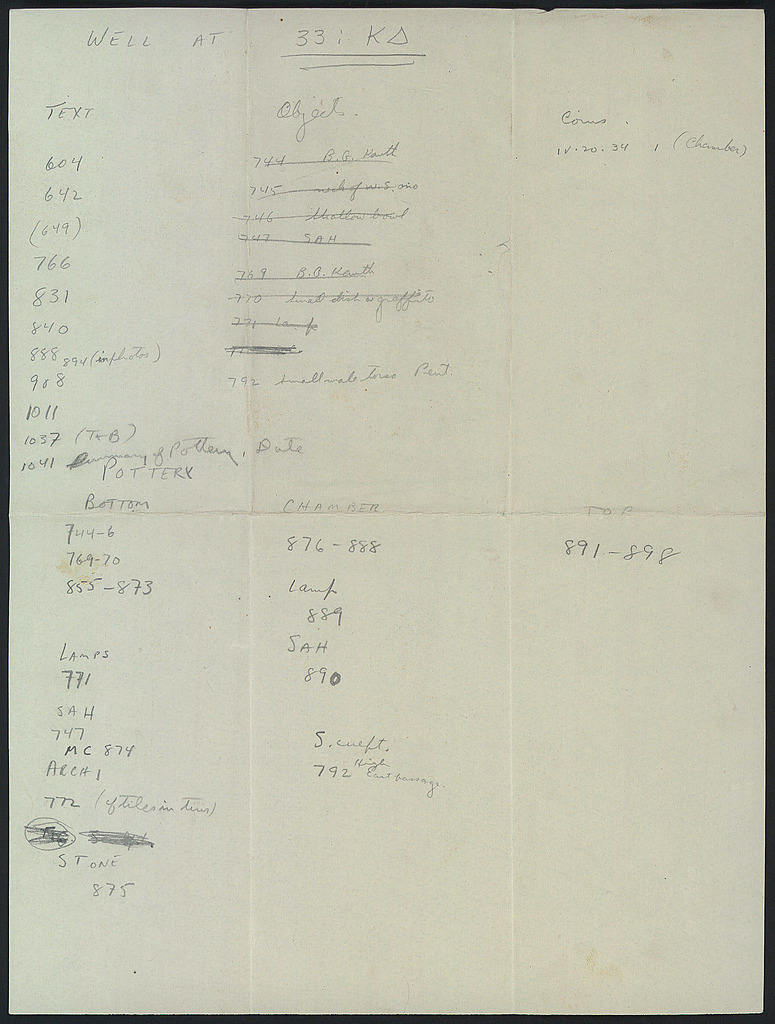 WELL AT 33: ΚΔ
TEXT
604
642
(649)
766
831
840
888 894 (in photos)
908
1011
1037 (T+B)
1041 Summary of Pottery, Date
Objects.
744 B.G. Kanth
745 neck of W.S. oino
746 shallow bowl
747 SAH
769 B.G. Kanth
770 small dish w graffito
771 Lamp
792 small male torso Pent.
Coins.
IV.20.34 1 (Chamber)
POTTERY
BOTTOM
744-6
769-70
855-873
LAMPS
771
SAH
747
MC 874
ARCHI
772 (of tiles in tins)
STONE
875
CHAMBER
876-888
Lamp
889
SAH
890
Sculpt.
792 High East passage.
TOP
891-898